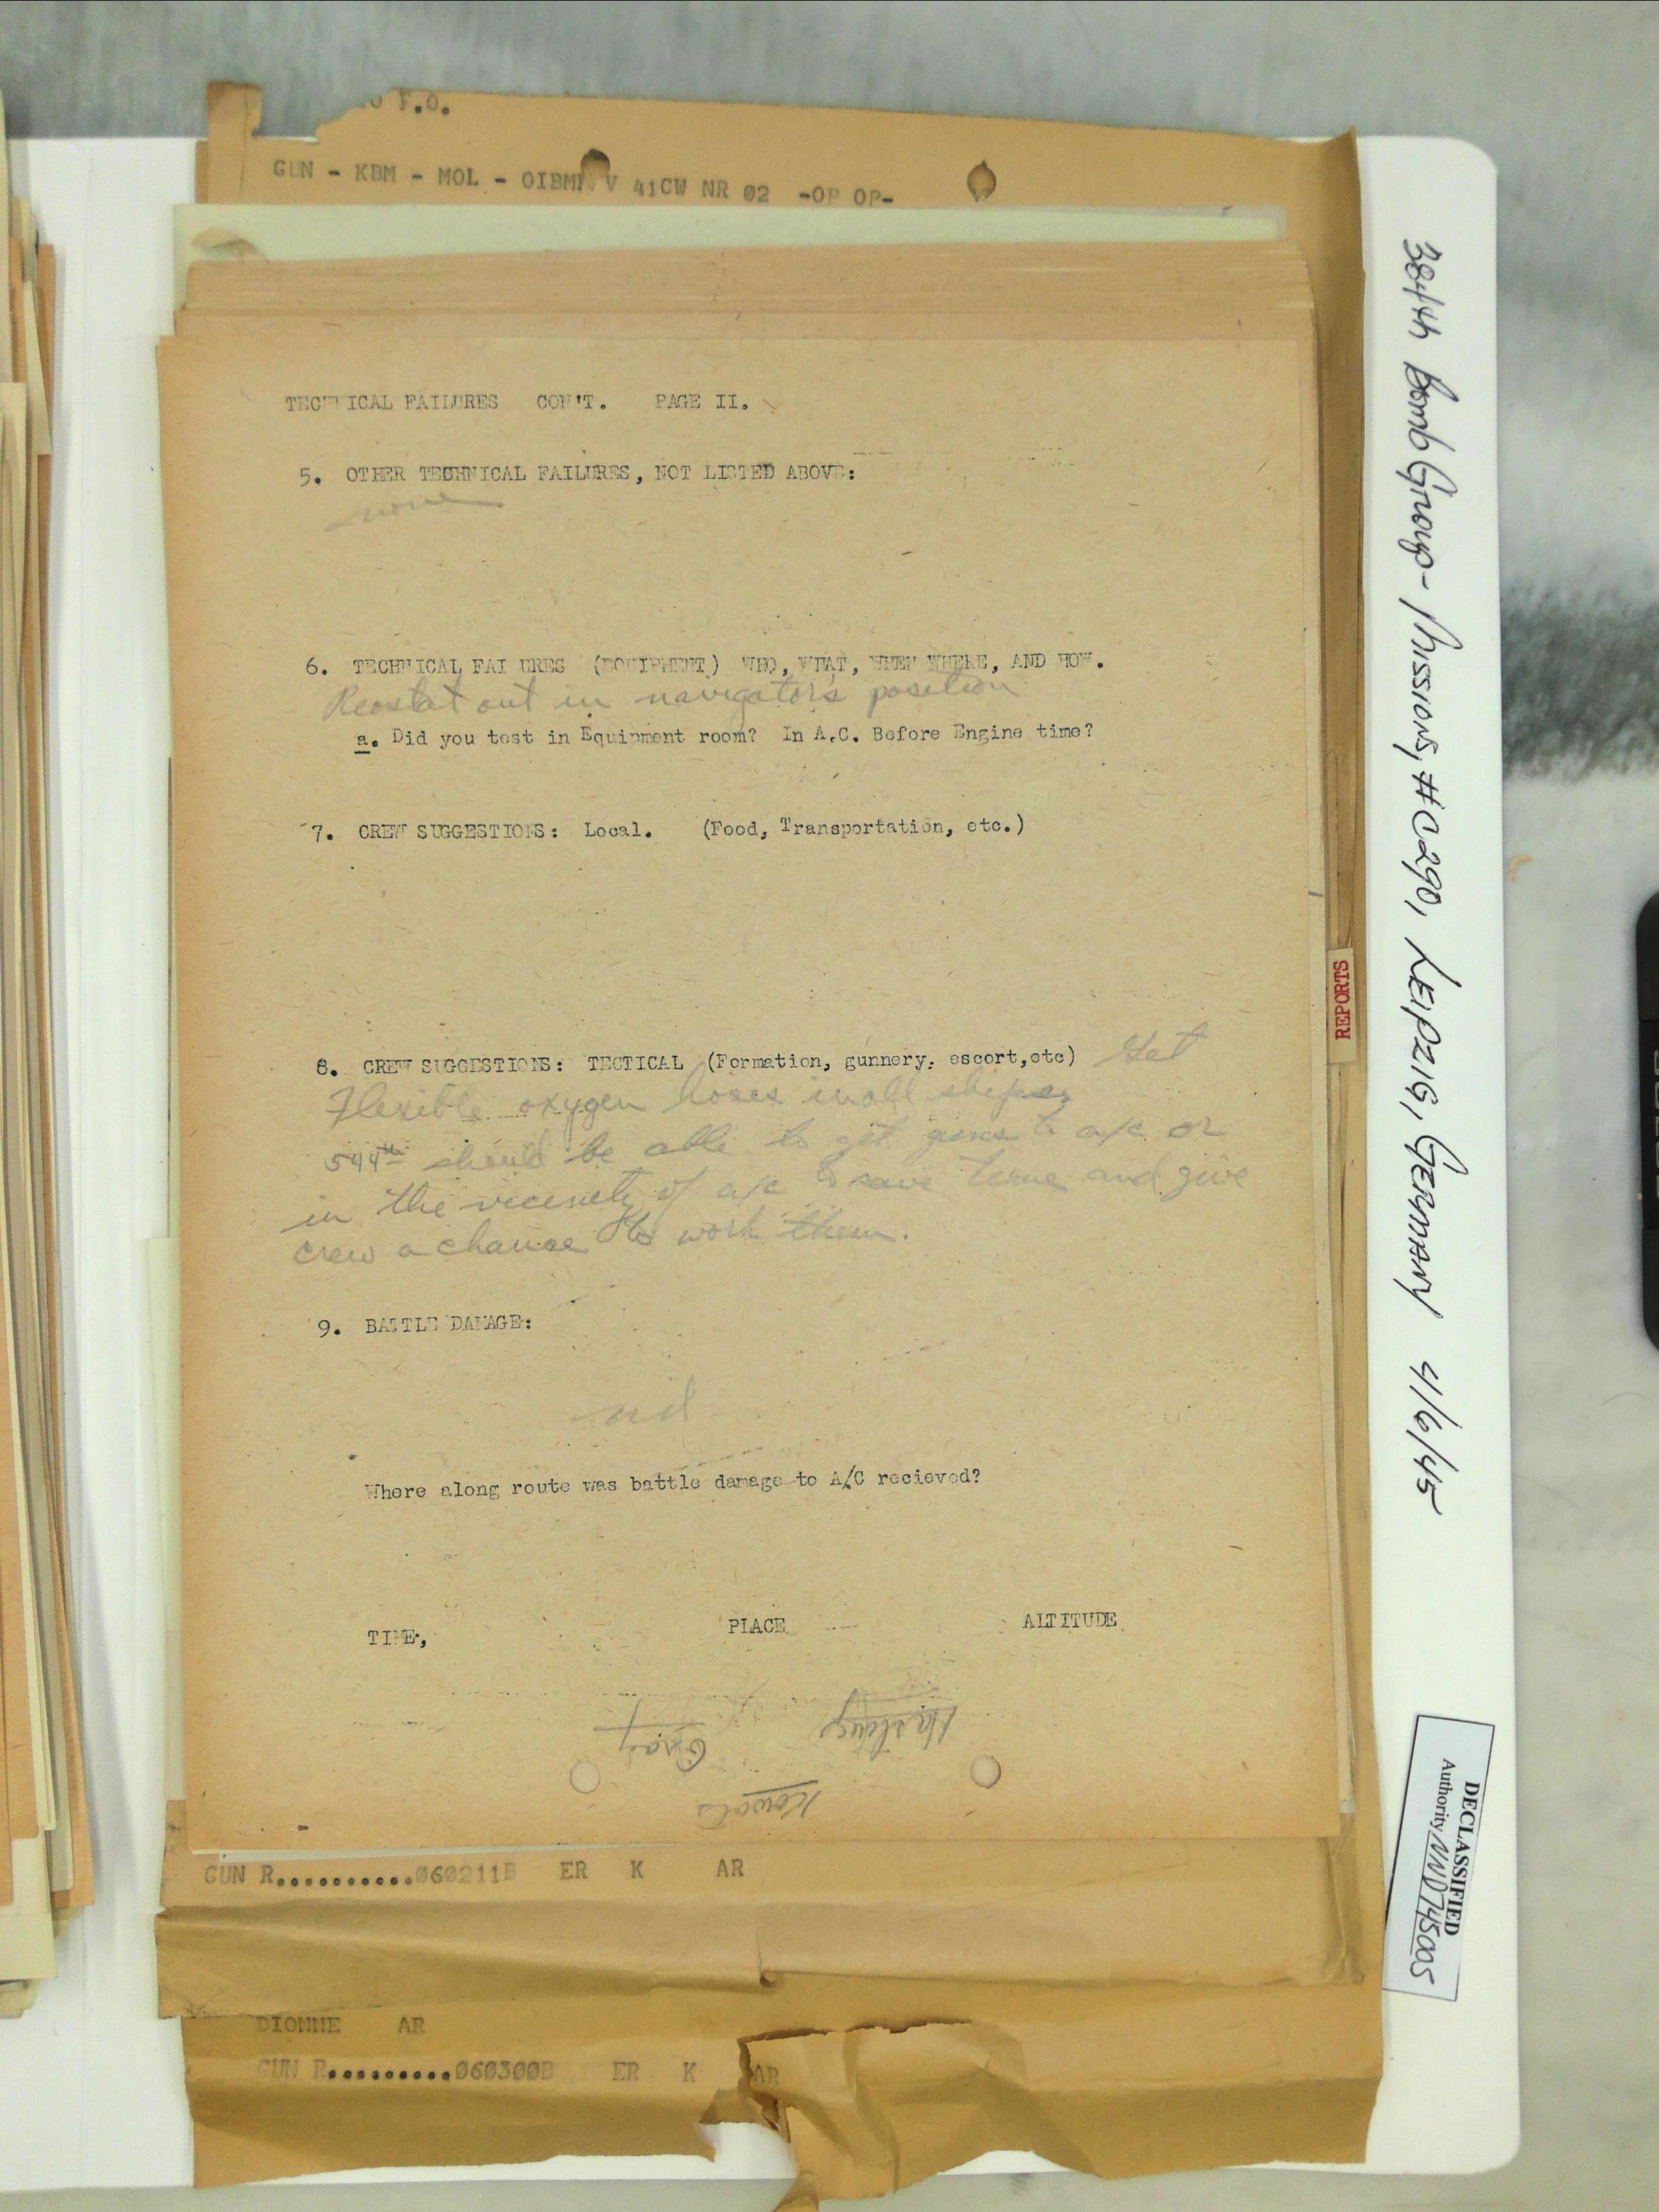 F.O.
GUN - KBM - MOL - OIBMN V 41CW NR 02 -OP OP-
TECHNICAL FAILURES CON'T. PAGE II.
5. OTHER TECHNICAL FAILURES, NOT LISTED ABOVE:
none
6. TECHNICAL FAI URES (EQUIPMENT) WHO, WHAT, WHEN WHERE, AND HOW.
Reostat out in navigator's position
a. Did you test in Equipment room? In A.C. Before Engine time?
7. CREW SUGGESTIONS: Local. (Food, Transportation, etc.)
8. CREW SUGGESTIONS: TECTICAL (Formation, gunnery. escort,etc) Get
Flexible oxygen hoses in all ships.
544th should be able to get guns to a/c or
in the vicenety of a/c to save time and give
crew a chance to work them.
9. BATTLE DAMAGE:
nil
Where along route was battle damage to A/C recieved?
TIME, PLACE ALTITUDE
Hastings
Gray
GUN R..........060211B ER K AR
DIONNE AR
GUN R..........060300B ER K AR
384th Bomb Group - Missions, #C290, LEIPZIG, GERMANY 4/6/45
REPORTS
DECLASSIFIED
Authority NND745005